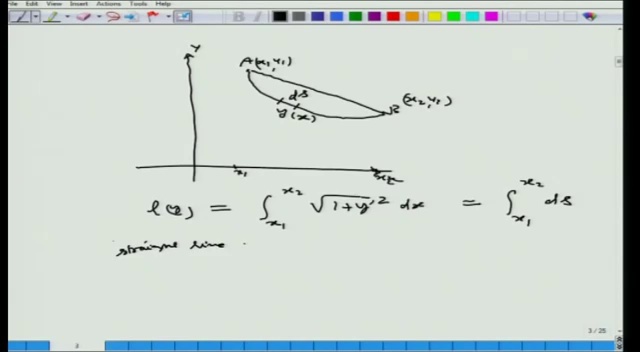 File Edit View Insert Actions Tools Help
Y
A(x₁,y₁)
(x₂,y₁)
B
ds
y(x)
x₁
l(y) = ∫_{x₁}^{x₂} √(1+y'²) dx = ∫_{x₁}^{x₂} ds
straight line .
3 / 25
3